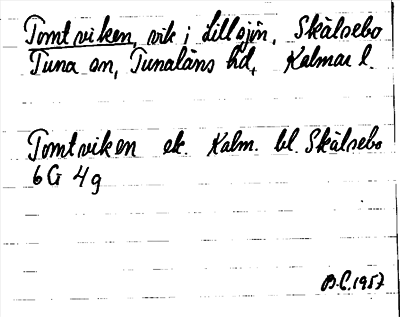 Tomtviken, vik i Lillsjön, Skälsebo
Tuna sn, Tunaläns hd, Kalmar l.
Tomtviken ek. Kalm. bl. Skälsebo
6G 4g
B.C. 1957